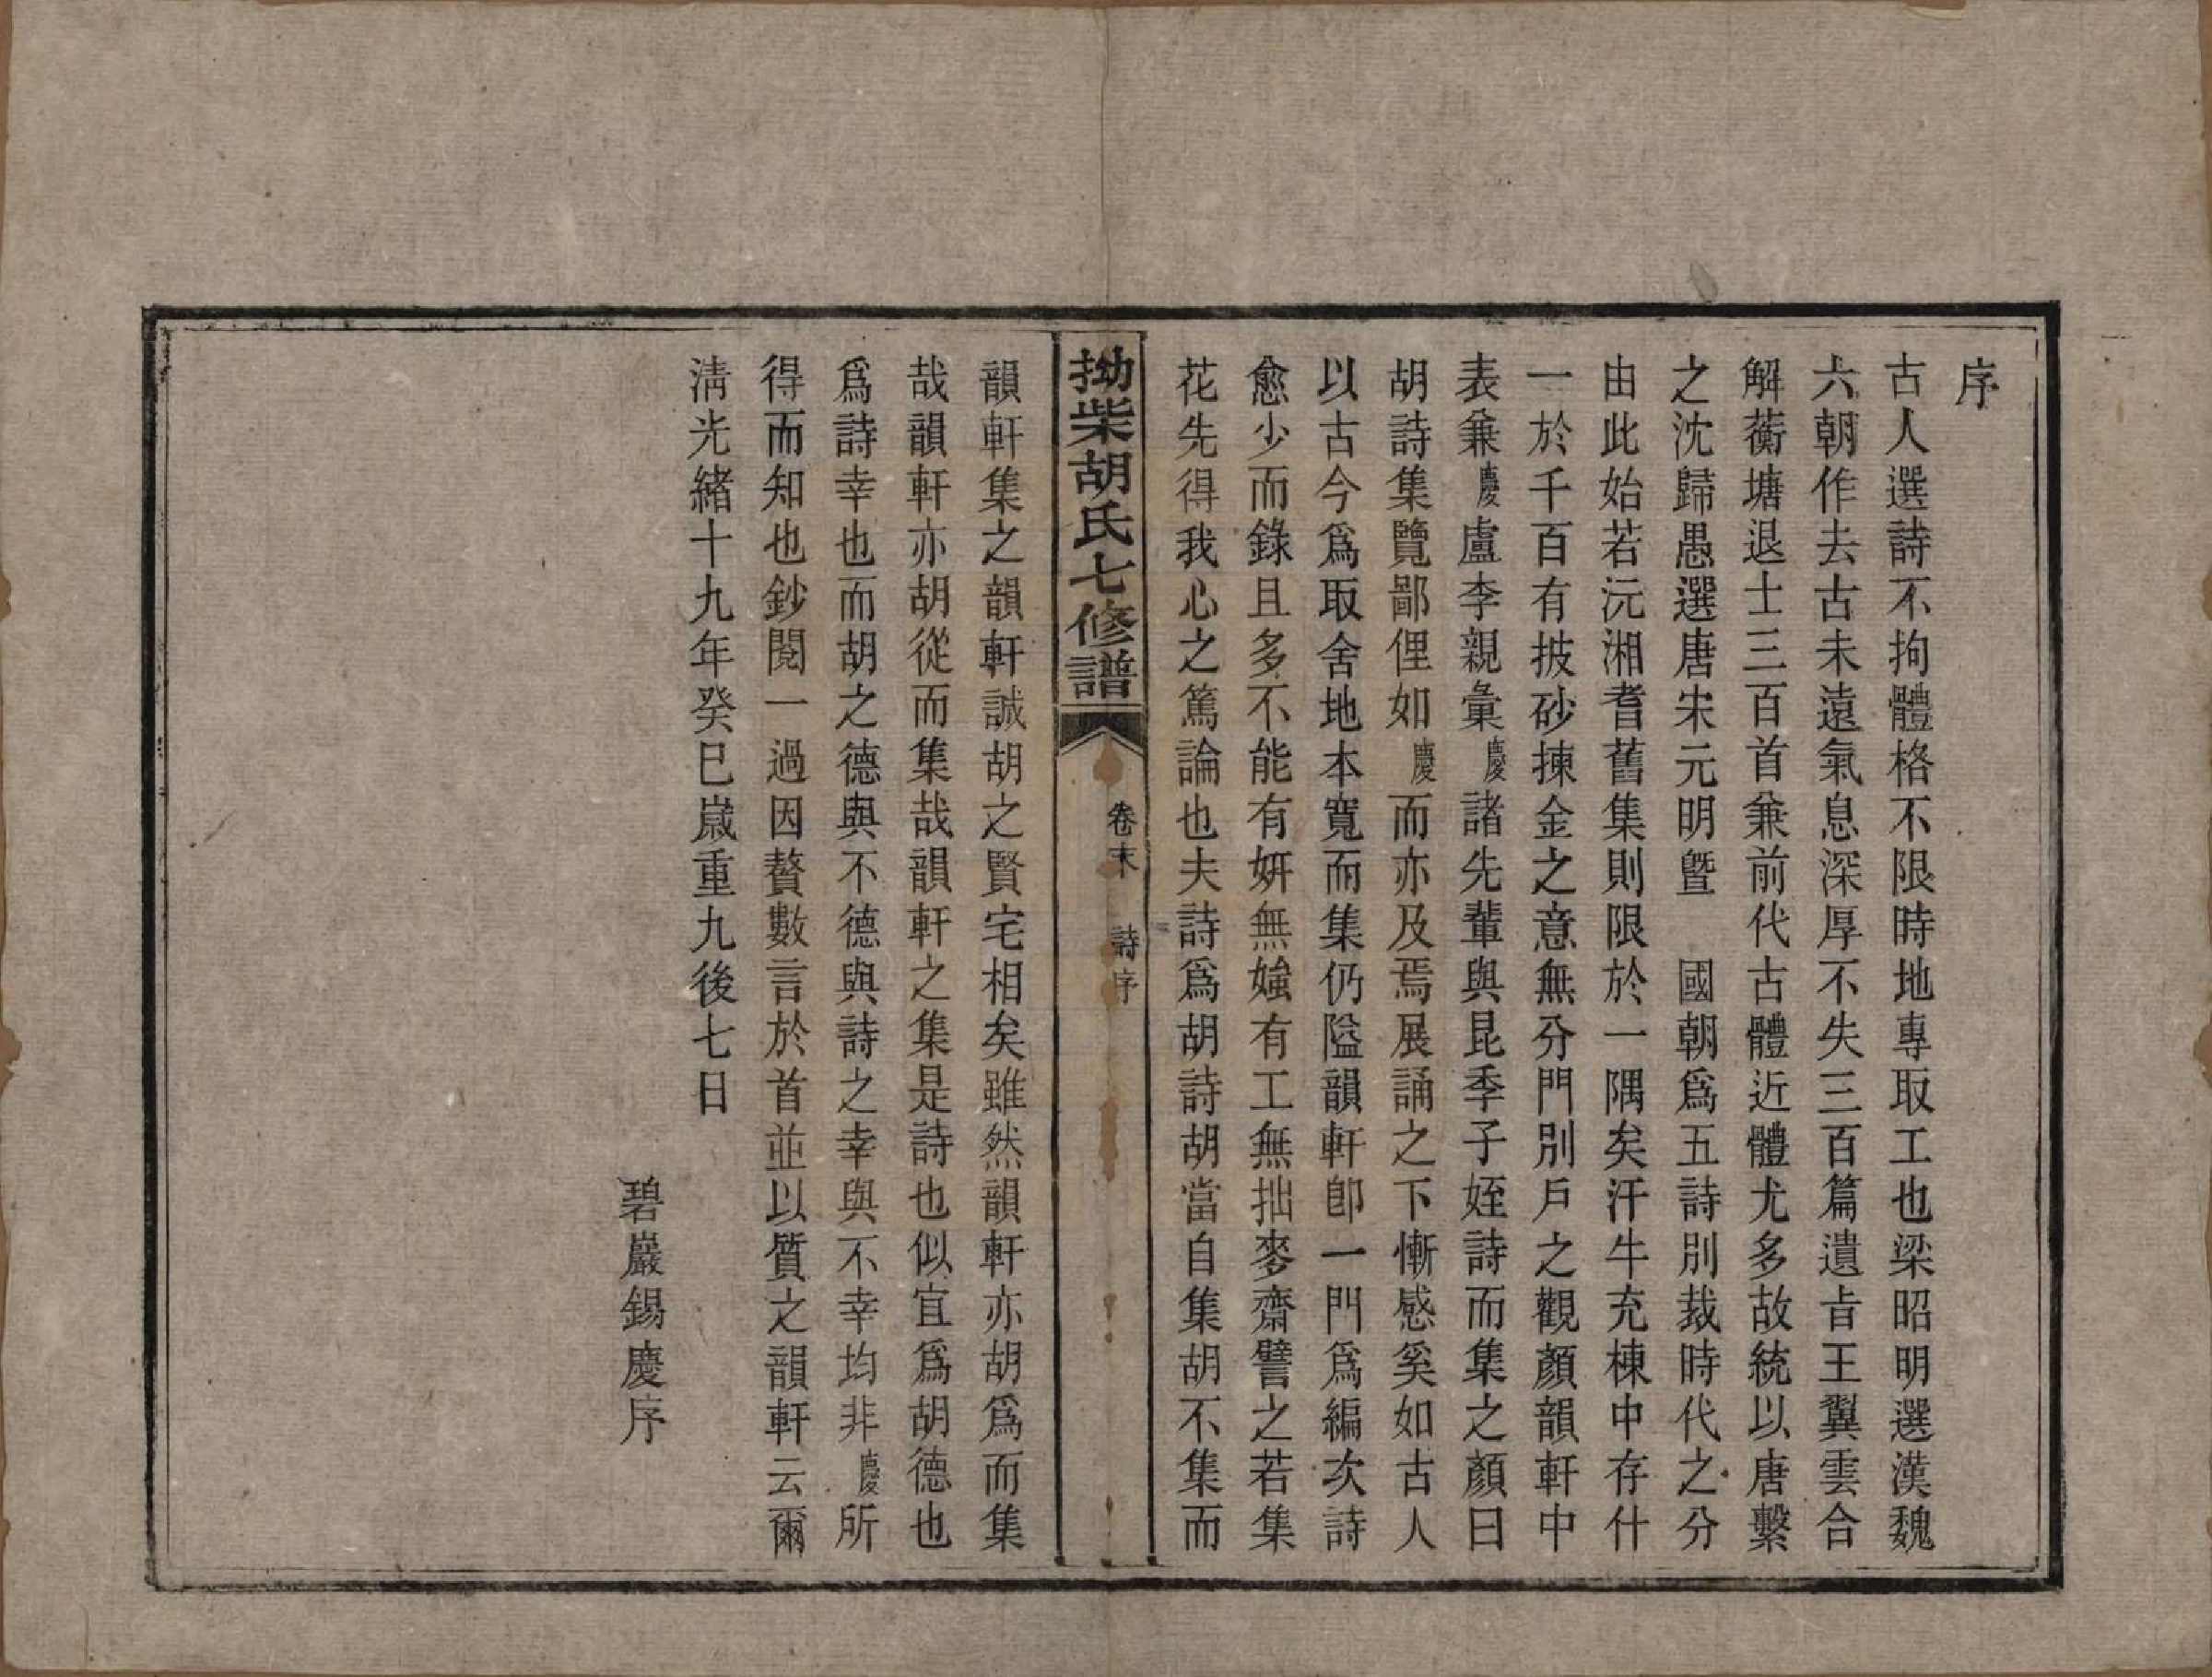 序
古人選詩不拘體格不限時地專取工也梁昭明選漢魏
六朝作去古未遠氣息深厚不失三百篇遺旨王翼雲合
解蘅塘退士三百首兼前代古體近體尤多故統以唐繫
之沈歸愚選唐宋元明曁　國朝爲五詩別裁時代之分
由此始若沅湘耆舊集則限於一隅矣汗牛充棟中存什
一於千百有披砂揀金之意無分門別戶之觀顏韻軒中
表兼慶盧李親彙慶諸先輩與昆季子姪詩而集之顏曰
胡詩集覽鄙俚如慶而亦及焉展誦之下慚感奚如古人
以古今爲取舍地本寬而集仍隘韻軒卽一門爲編次詩
愈少而錄且多不能有妍無媸有工無拙麥齋譬之若集
花先得我心之篤論也夫詩爲胡詩胡當自集胡不集而
拗柴胡氏七修譜
卷末　詩序
韻軒集之韻軒誠胡之賢宅相矣雖然韻軒亦胡爲而集
哉韻軒亦胡從而集哉韻軒之集是詩也似宜爲胡德也
爲詩幸也而胡之德與不德與詩之幸與不幸均非慶所
得而知也鈔閱一過因贅數言於首並以質之韻軒云爾
淸光緖十九年癸巳嵗重九後七日
碧巖錫慶序